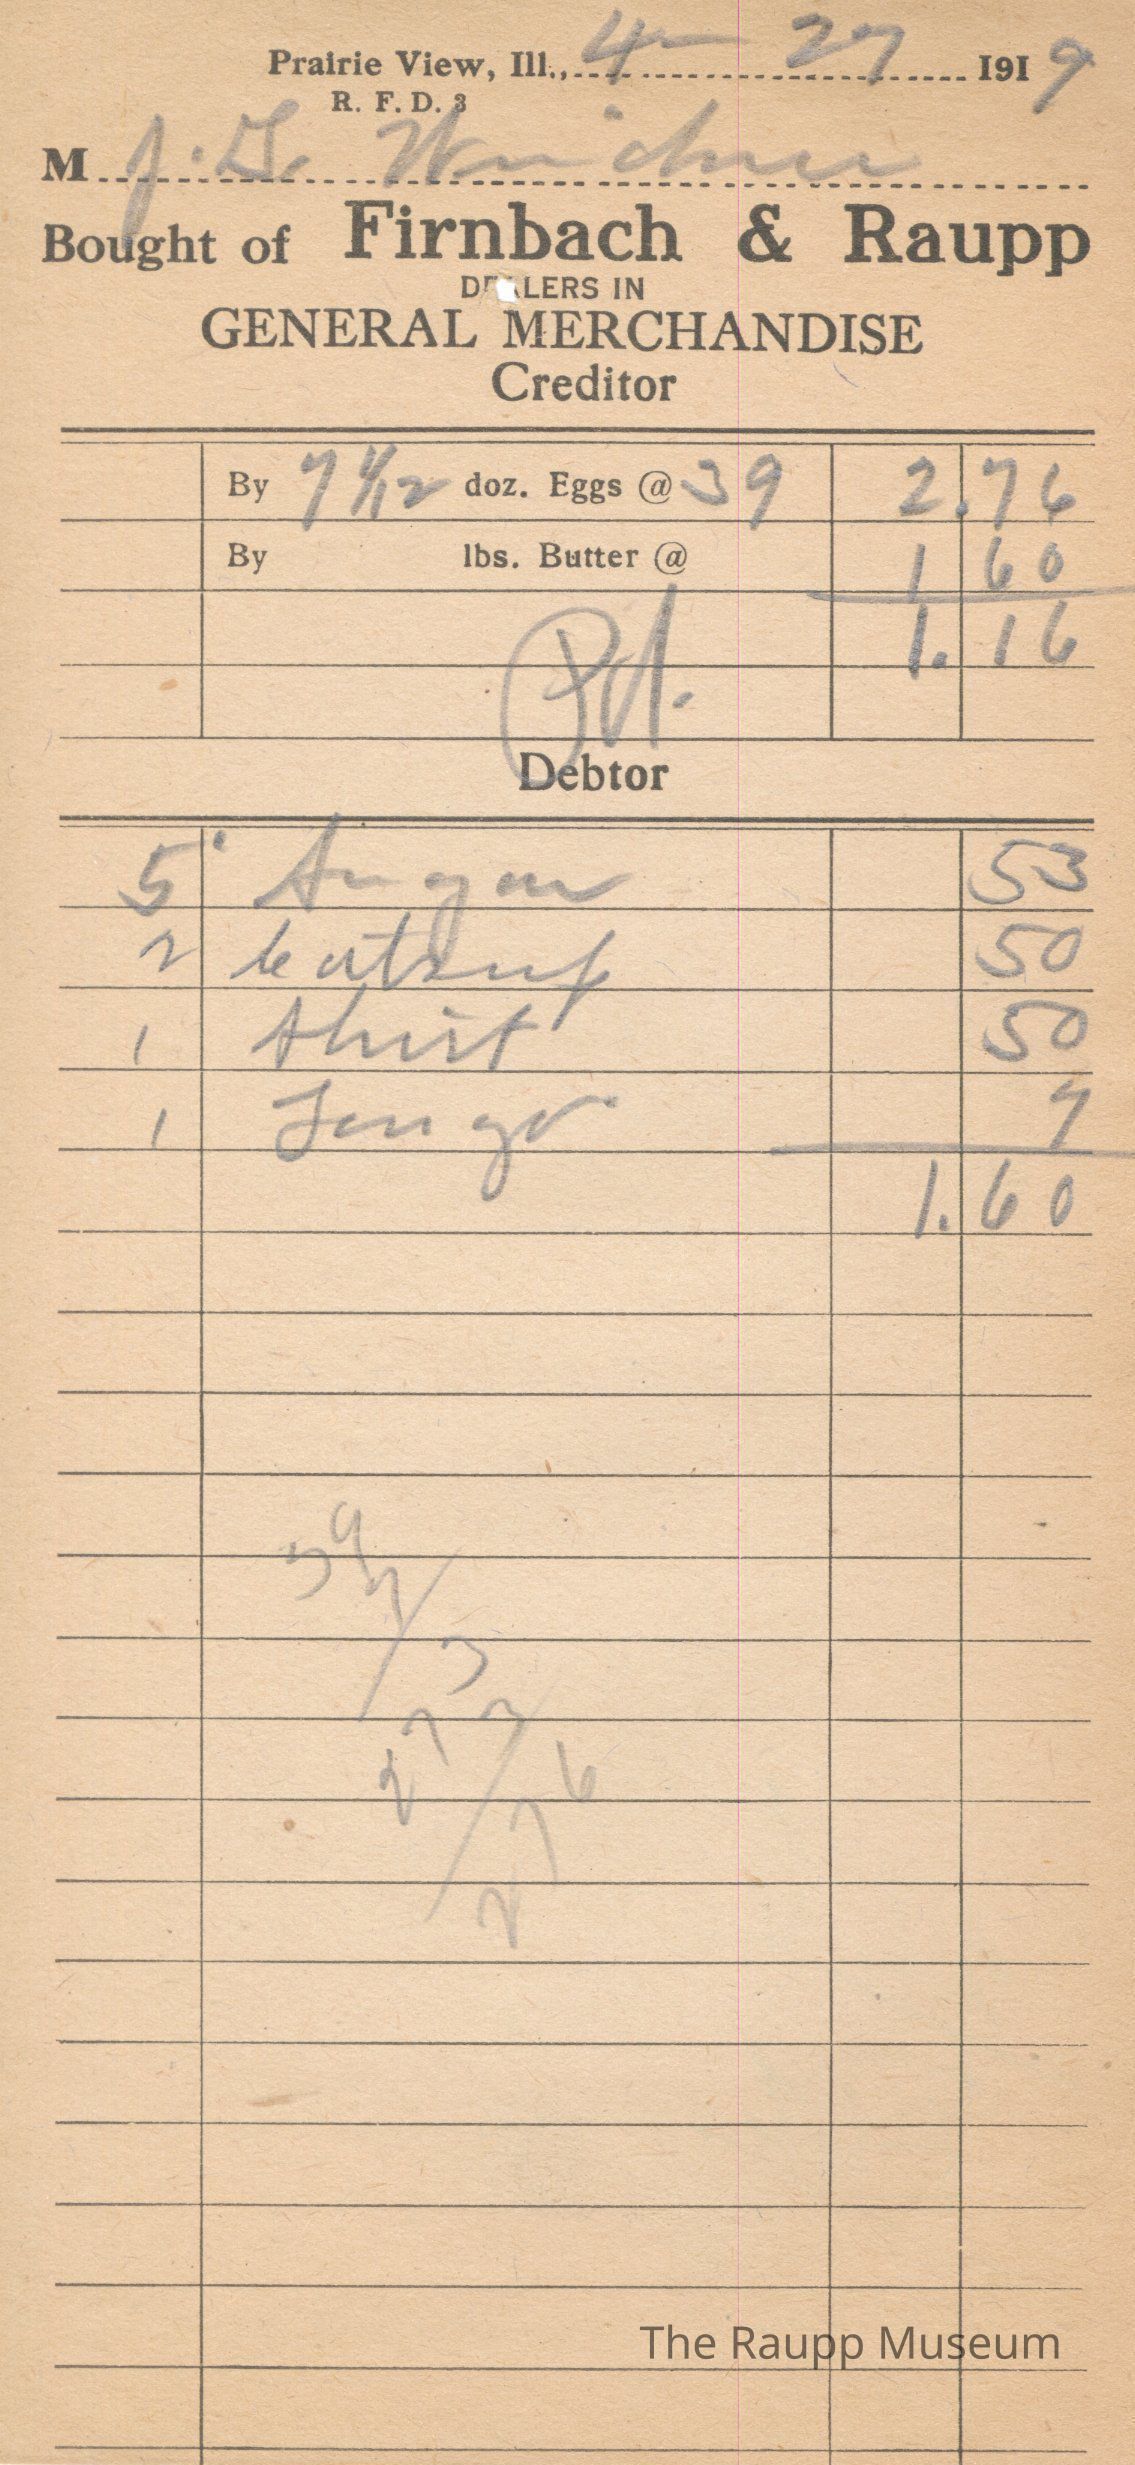 Prairie View, Ill., 4 - 27 1919
R. F. D. 3
M J. G. Weidner
Bought of Firnbach & Raupp
DEALERS IN
GENERAL MERCHANDISE
Creditor
By 7 1/12 doz. Eggs @ 39 2.76
By lbs. Butter @ 1 60
1.16
Pd.
Debtor
5 Sugar 53
2 Catsup 50
1 Shirt 50
1 7
1.60
39
7
3
27 3
6
27
The Raupp Museum